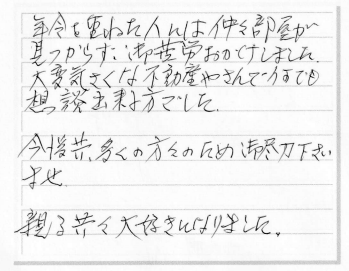 年令を重ねた人には仲々部屋が
見つからず、御苦労おかけしました。
大変気さくな不動産やさんで何でも
想談出来る方でした。
今後共、多くの方々のため御尽力下さい
ませ。
親子共々大好きになりました。